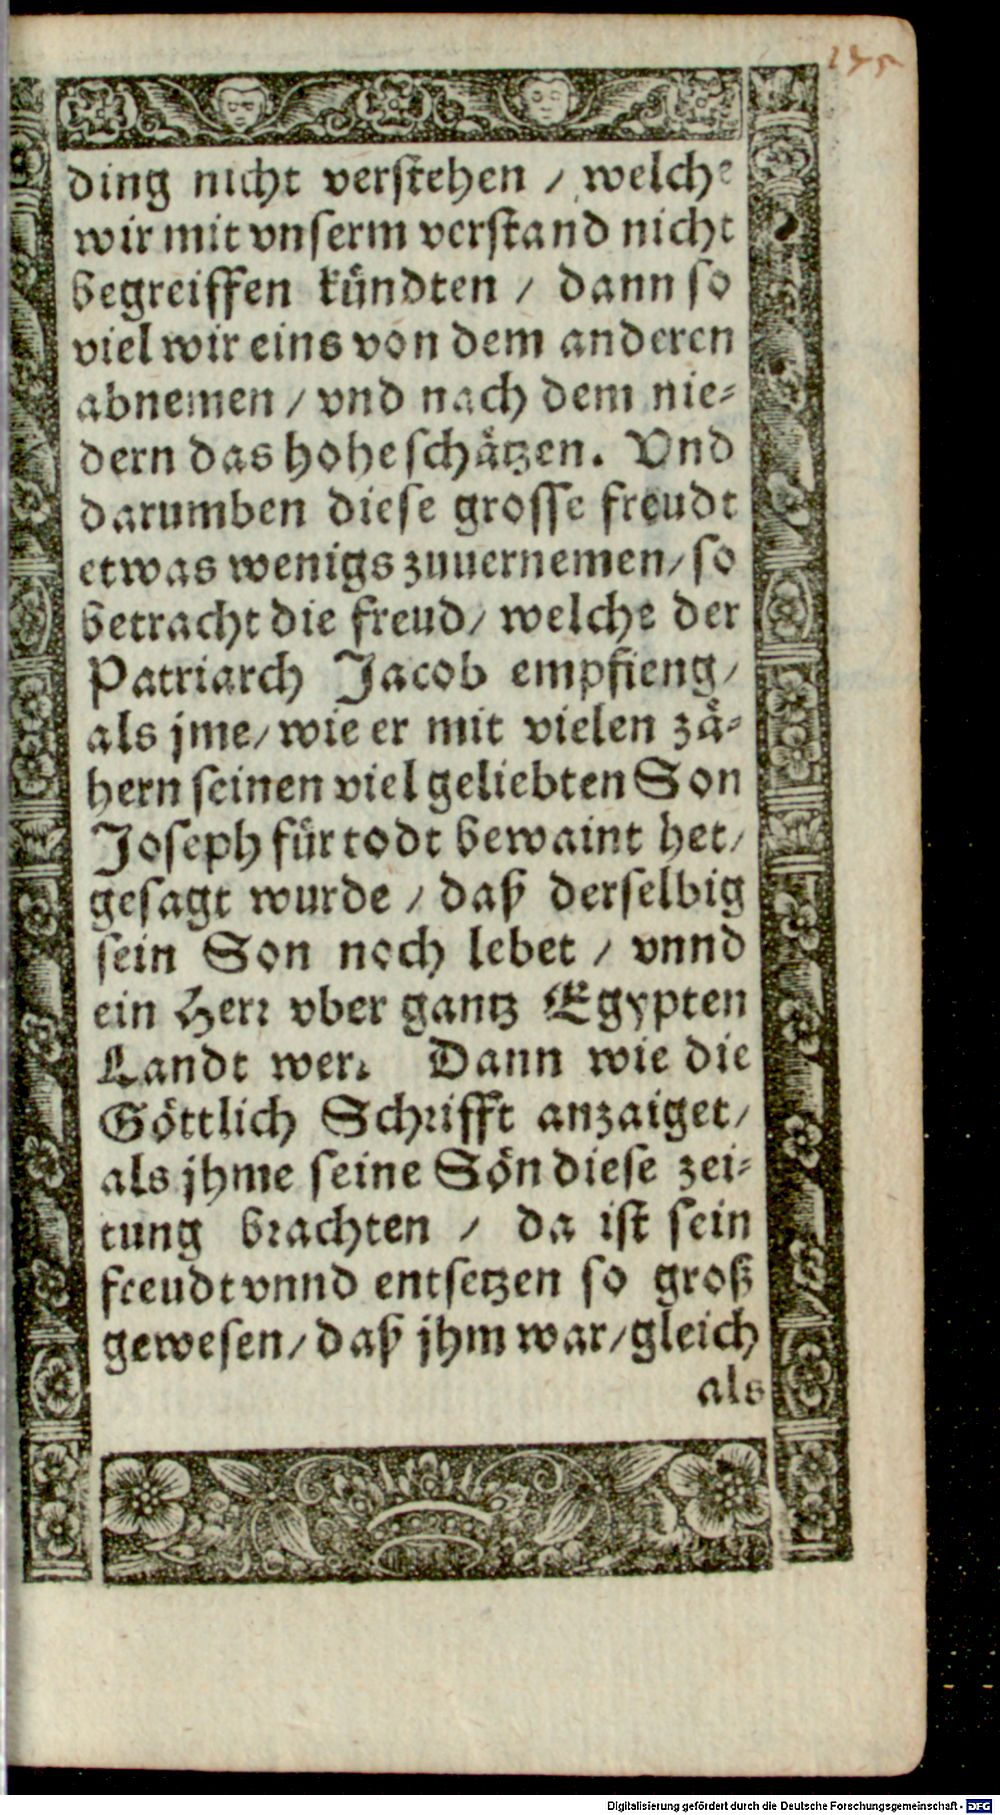 175
ding nicht verstehen / welche
wir mit vnserm verstand nicht
begreiffen kündten / dann so
viel wir eins von dem anderen
abnemen / vnd nach dem nie-
dern das hohe schätzen. Vnd
darumben diese grosse freudt
etwas wenigs zuuernemen / so
betracht die freud / welche der
Patriarch Jacob empfieng /
als jme / wie er mit vielen zä-
hern seinen viel geliebten Son
Joseph für todt bewaint het /
gesagt wurde / daß derselbig
sein Son noch lebet / vnnd
ein Herr vber gantz Egypten
Landt wer. Dann wie die
Göttlich Schrifft anzaiget /
als jhme seine Sön diese zei-
tung brachten / da ist sein
freudt vnnd entsetzen so groß
gewesen / daß jhm war / gleich
als
Digitalisierung gefördert durch die Deutsche Forschungsgemeinschaft - DFG